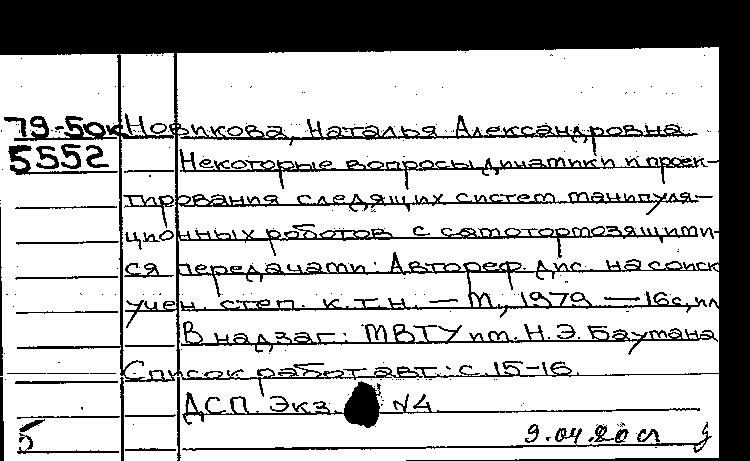 79-50к Новикова, Наталья Александровна
5552 Некоторые вопросы динамики и проек-
тирования следящих систем манипуля-
ционных роботов с самотормозящими-
ся передачами: Автореф. дис. на соиск
учен. степ. к.т.н. — М., 1979 — 16с, ил
В надзаг: МВТУ им. Н.Э. Баумана
Список работ авт.: с. 15-16.
ДСП. Экз. №4
б 9.04.80